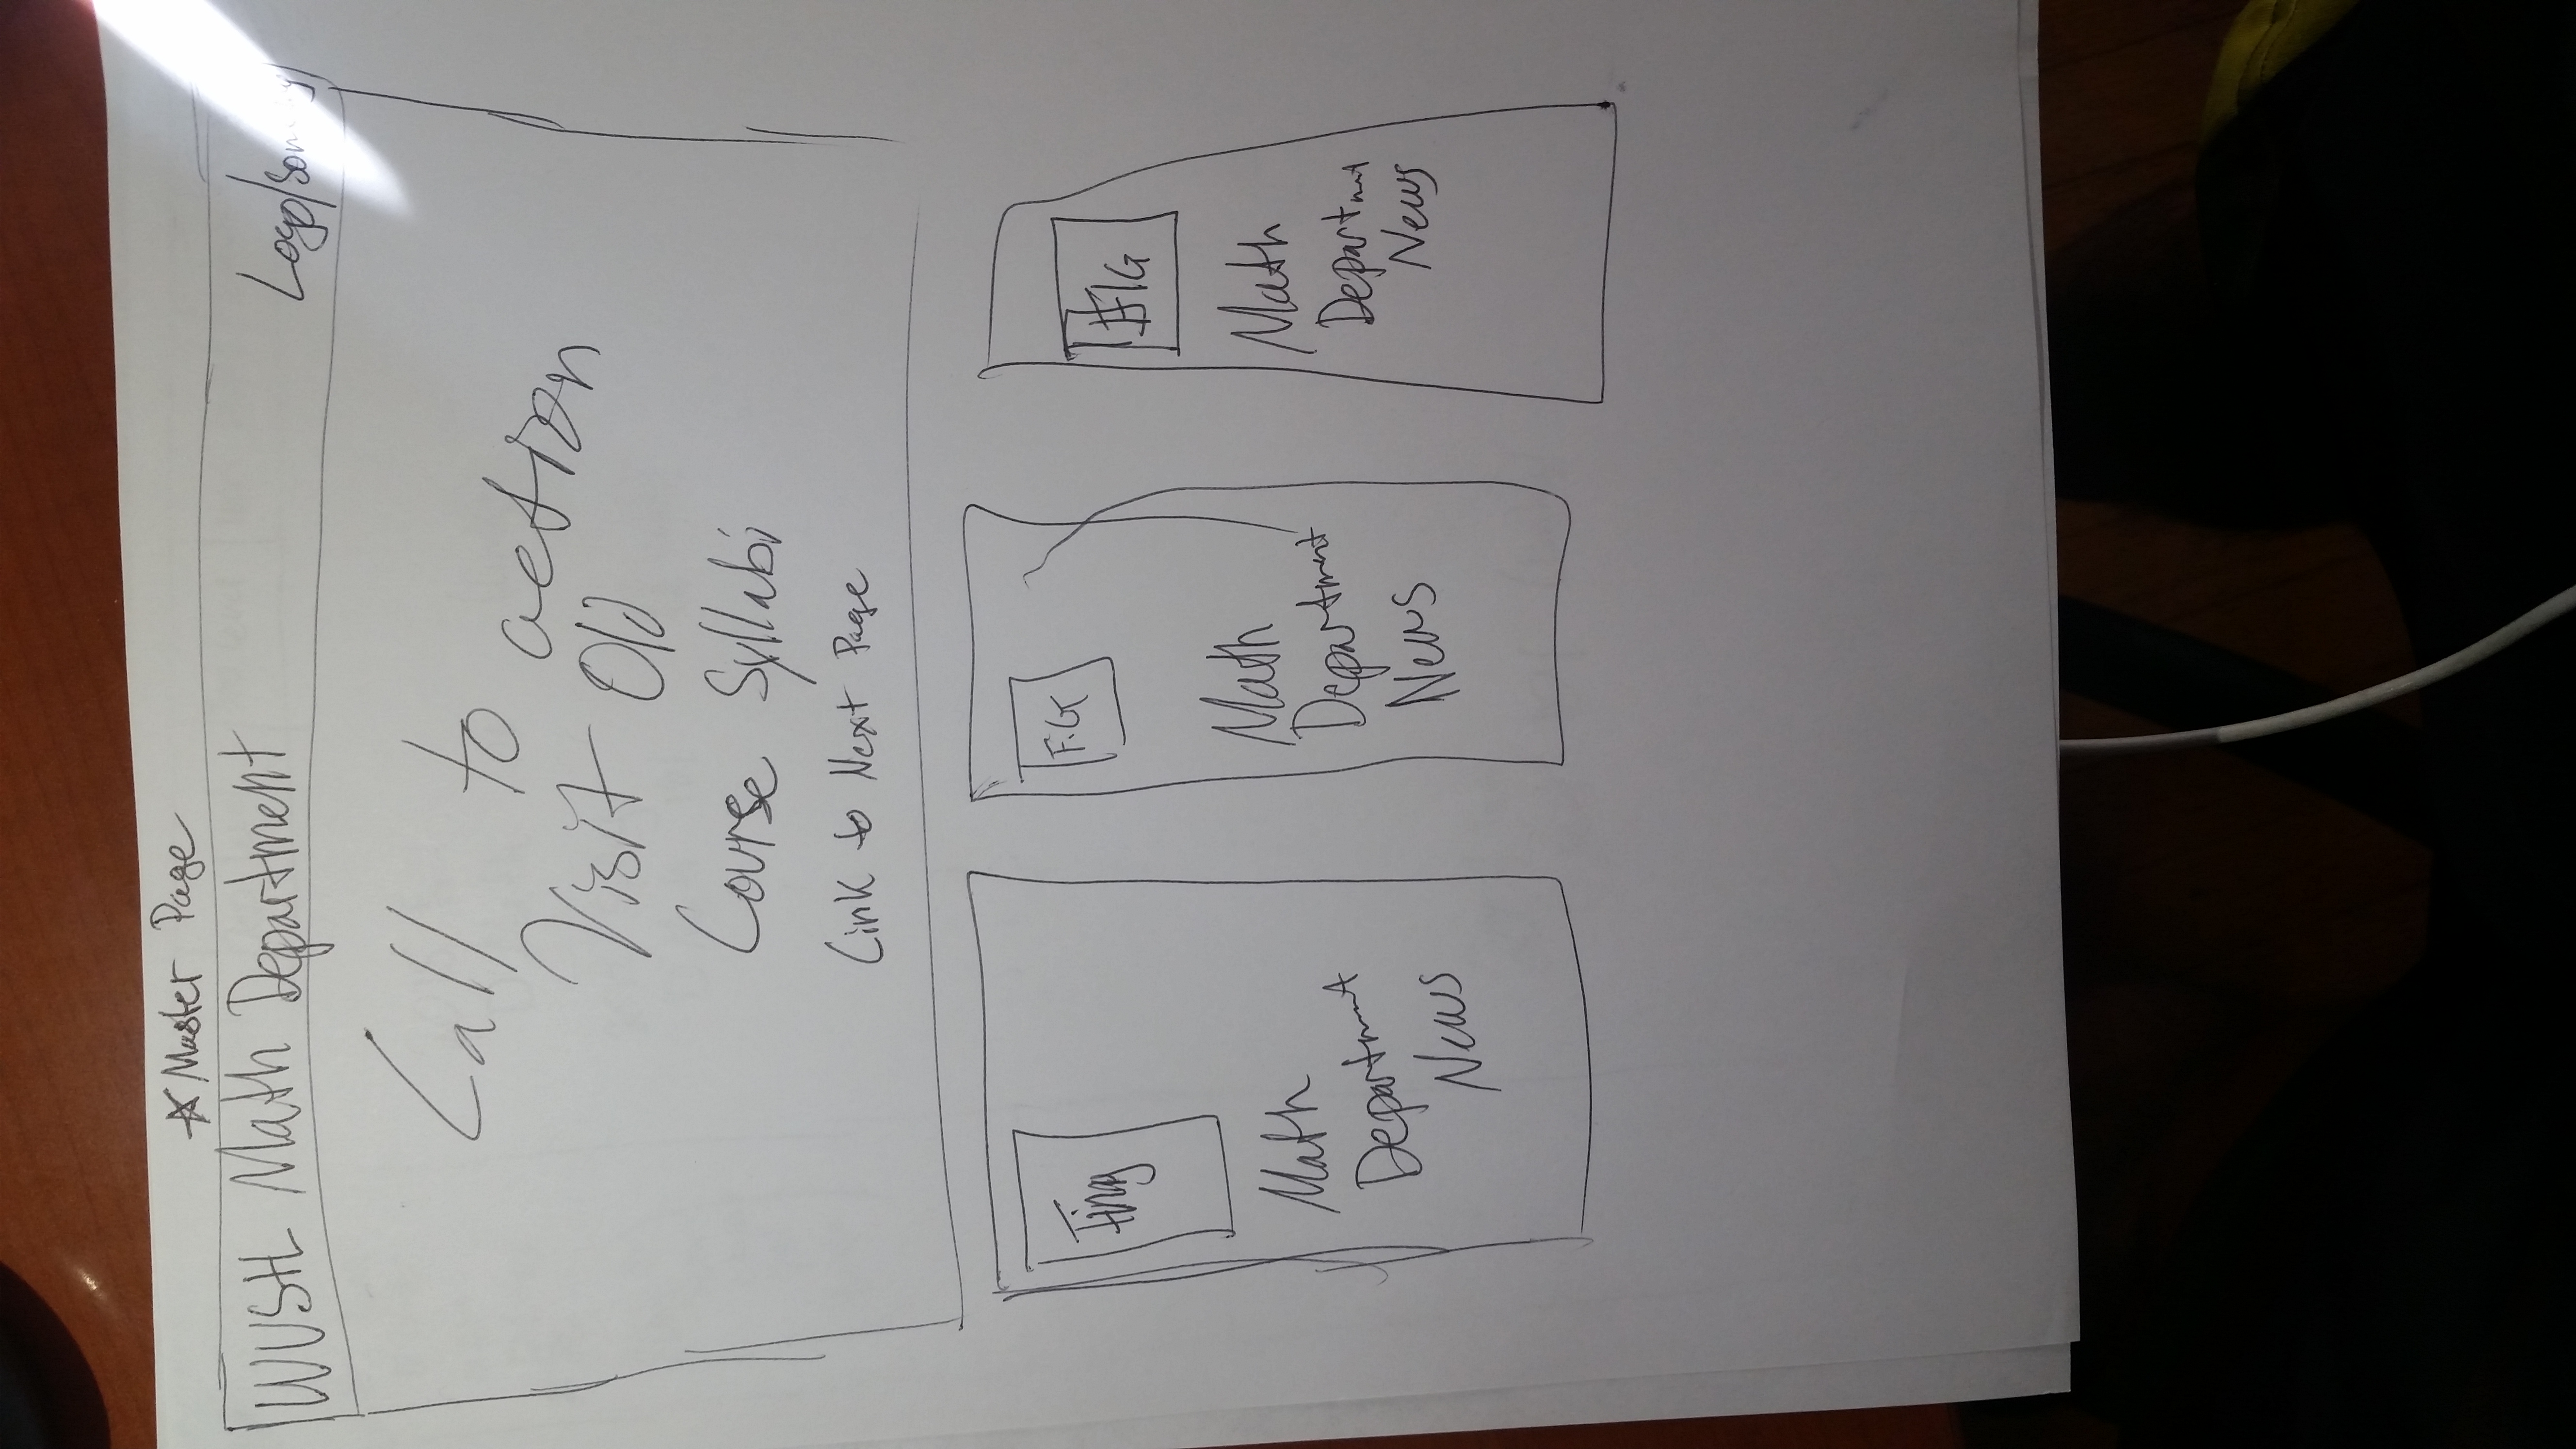 ☆ Master Page
WUStL Math Department
Logo/
Call to action
Visit Old
Course Syllabi
Link to Next Page
FIG
FIG
Math
Department
News
Math
Department
News
Math
Department
News